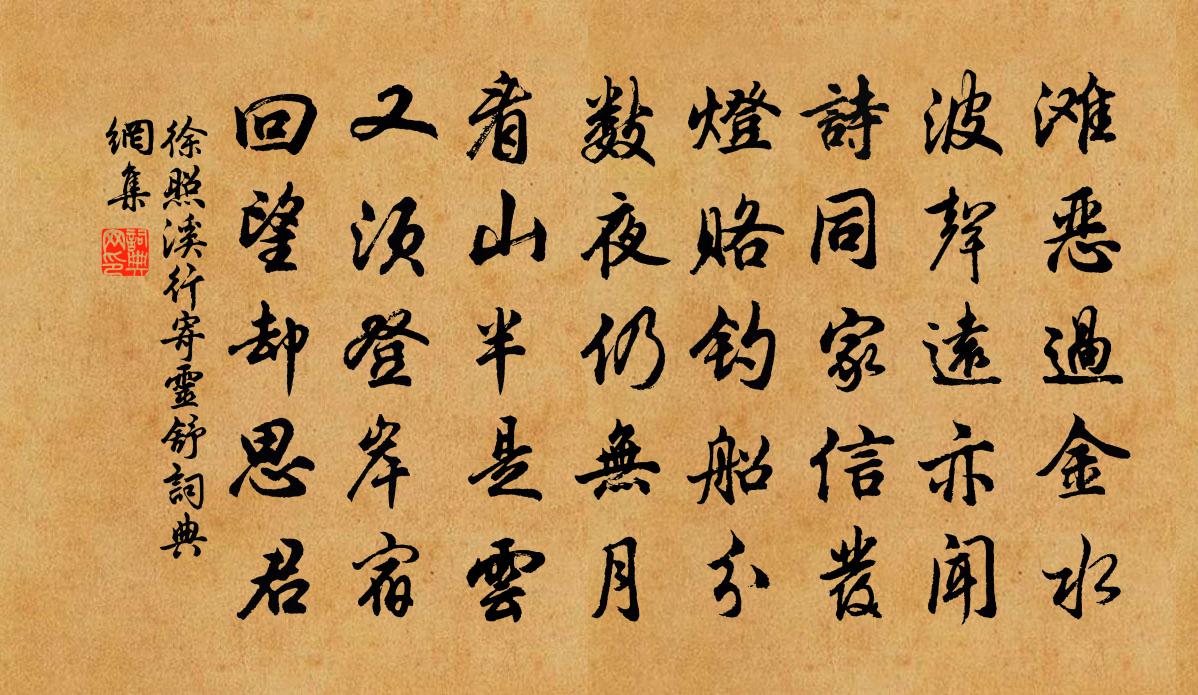 滩恶過金水
波聲遠亦聞
詩同家信發
燈賂钓船分
數夜仍無月
看山半是雲
又須登岸宿
回望却思君
徐照溪行寄靈舒詞典
網集
詞典網印